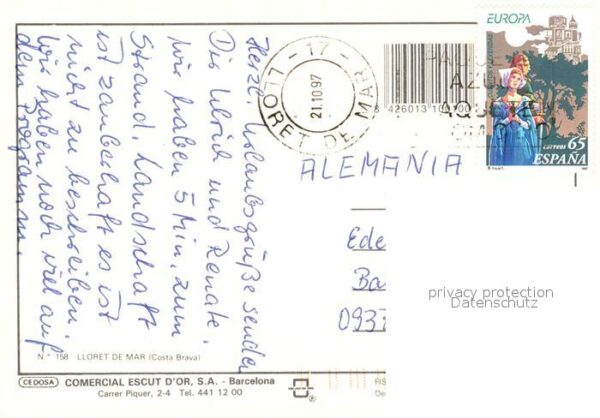 Herzl. Urlaubsgrüße senden
Dir Ulrich und Renate.
Wir haben 5 Min. zum
Strand, Landschaft
ist zauberhaft es ist
nicht zu beschreiben.
Wir haben noch viel auf
dem Programm.
Nº 158 LLORET DE MAR (Costa Brava)
CEDOSA
COMERCIAL ESCUT D'OR, S.A. - Barcelona
Carrer Piquer, 2-4 Tel. 441 12 00
- 17 -
21.10.97
LLORET DE MAR
8 426013 100100
EUROPA
correos 65
ESPAÑA
ALEMANIA
Ede
Ba
0937
privacy protection
Datenschutz